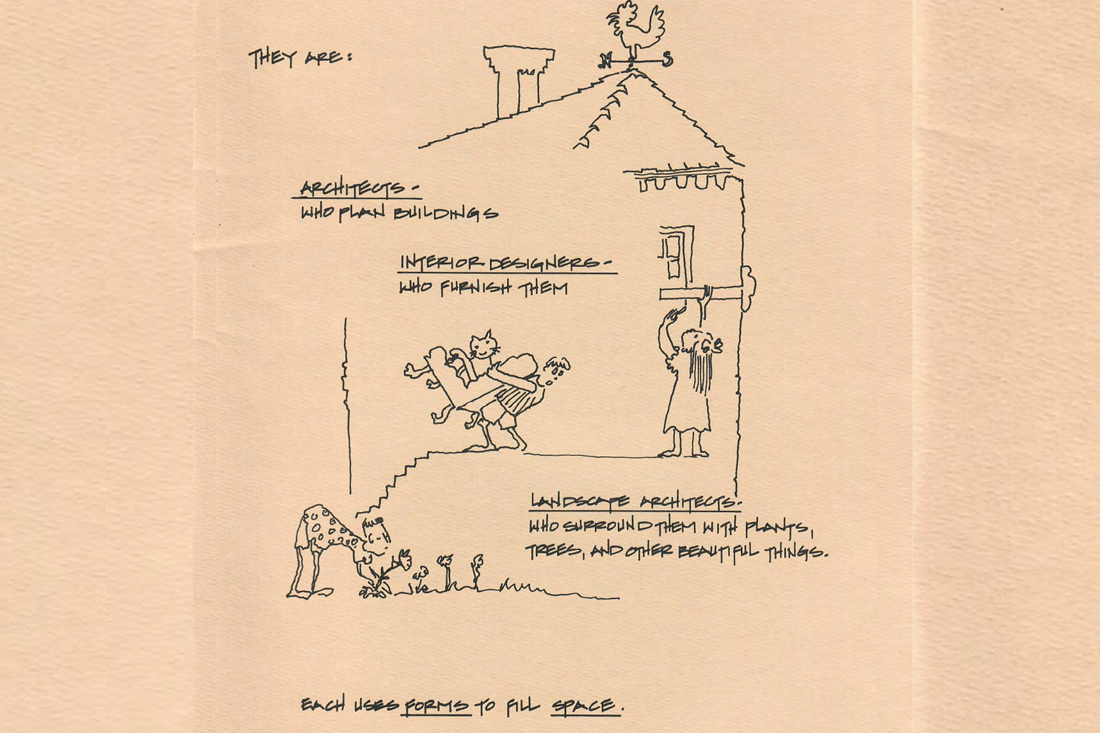 THEY ARE:
N S
ARCHITECTS -
WHO PLAN BUILDINGS
INTERIOR DESIGNERS -
WHO FURNISH THEM
LANDSCAPE ARCHITECTS -
WHO SURROUND THEM WITH PLANTS,
TREES, AND OTHER BEAUTIFUL THINGS.
EACH USES FORMS TO FILL SPACE.